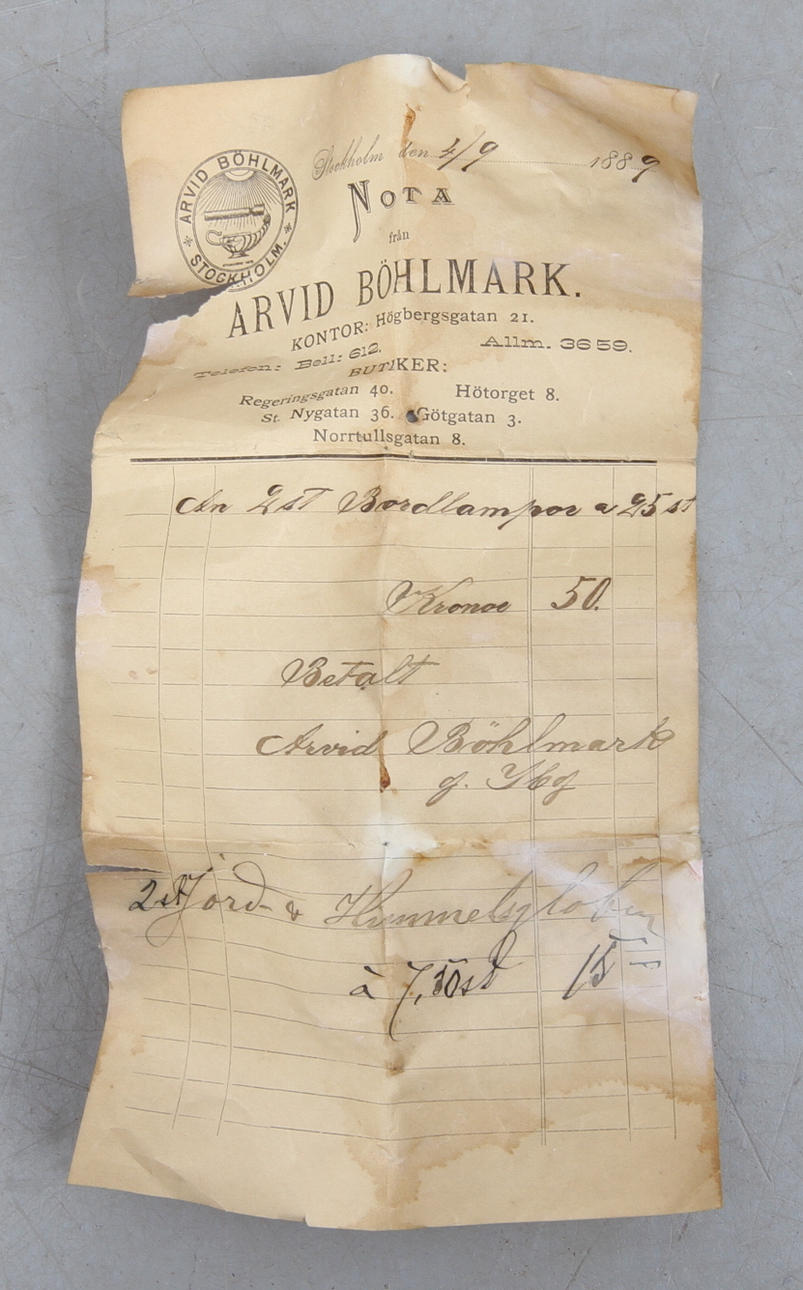 ARVID BÖHLMARK
STOCKHOLM.
Stockholm den 4/9 1889
NOTA
från
ARVID BÖHLMARK.
KONTOR: Högbergsgatan 21.
Telefon: Bell: 612. Allm. 3659.
BUTIKER:
Regeringsgatan 40. Hötorget 8.
St. Nygatan 36. Götgatan 3.
Norrtullsgatan 8.
An 2 st Bordlampor a 25 st
Kronor 50.
Betalt
Arvid Böhlmark
2 st Jord- & Himmelsglober
à 7,50 st 15